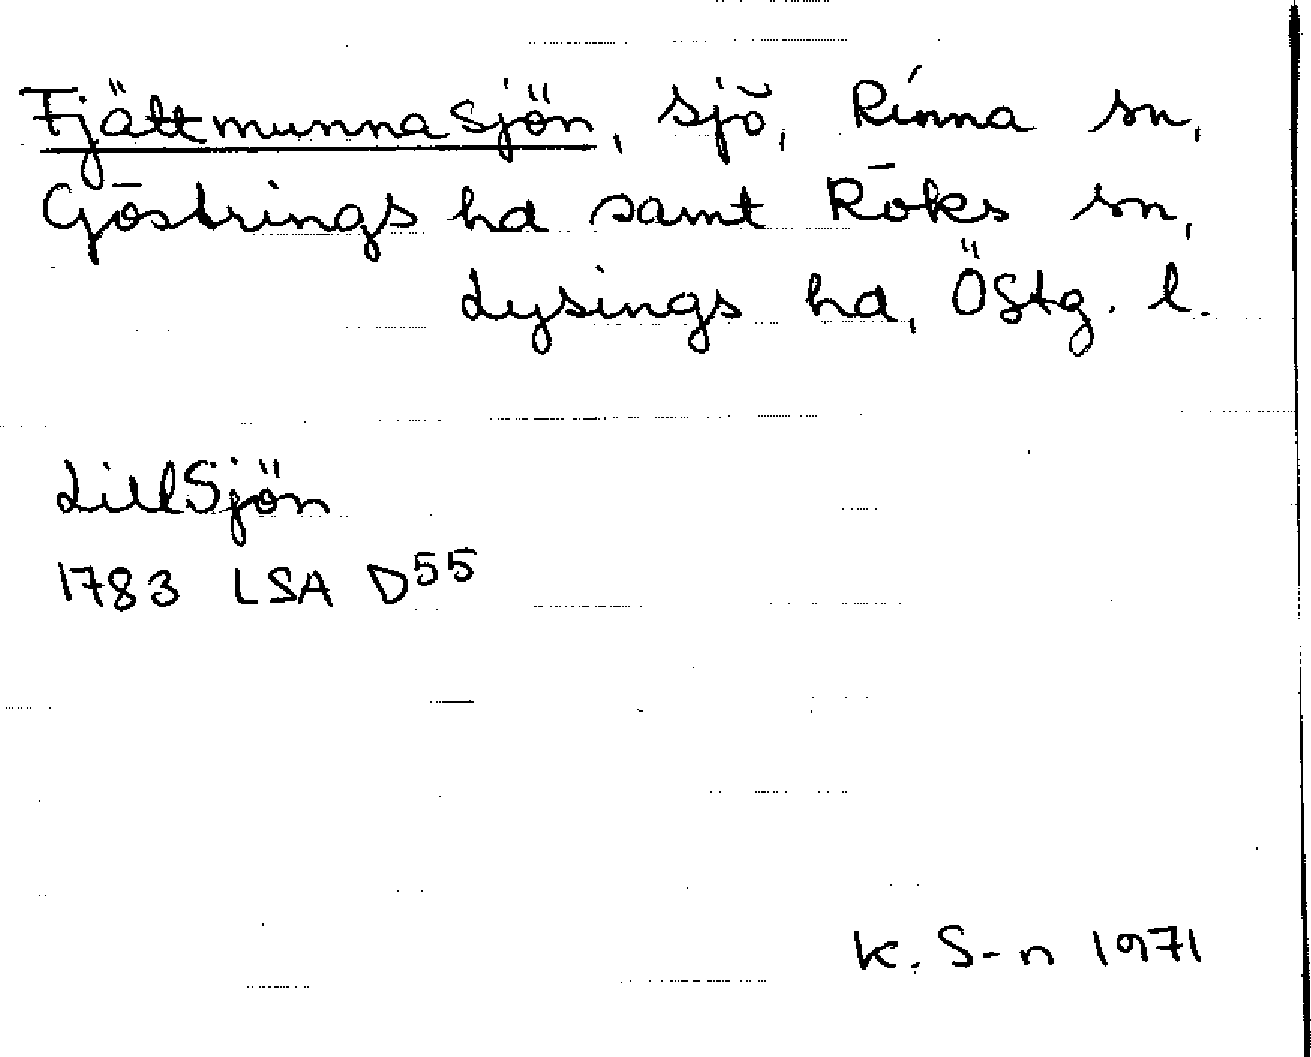 Fjättmunnasjön, sjö, Rinna sn,
Göstrings hd samt Röks sn,
Lysings hd, Östg. l.
LillSjön
1783 LSA D55
K. S-n 1971